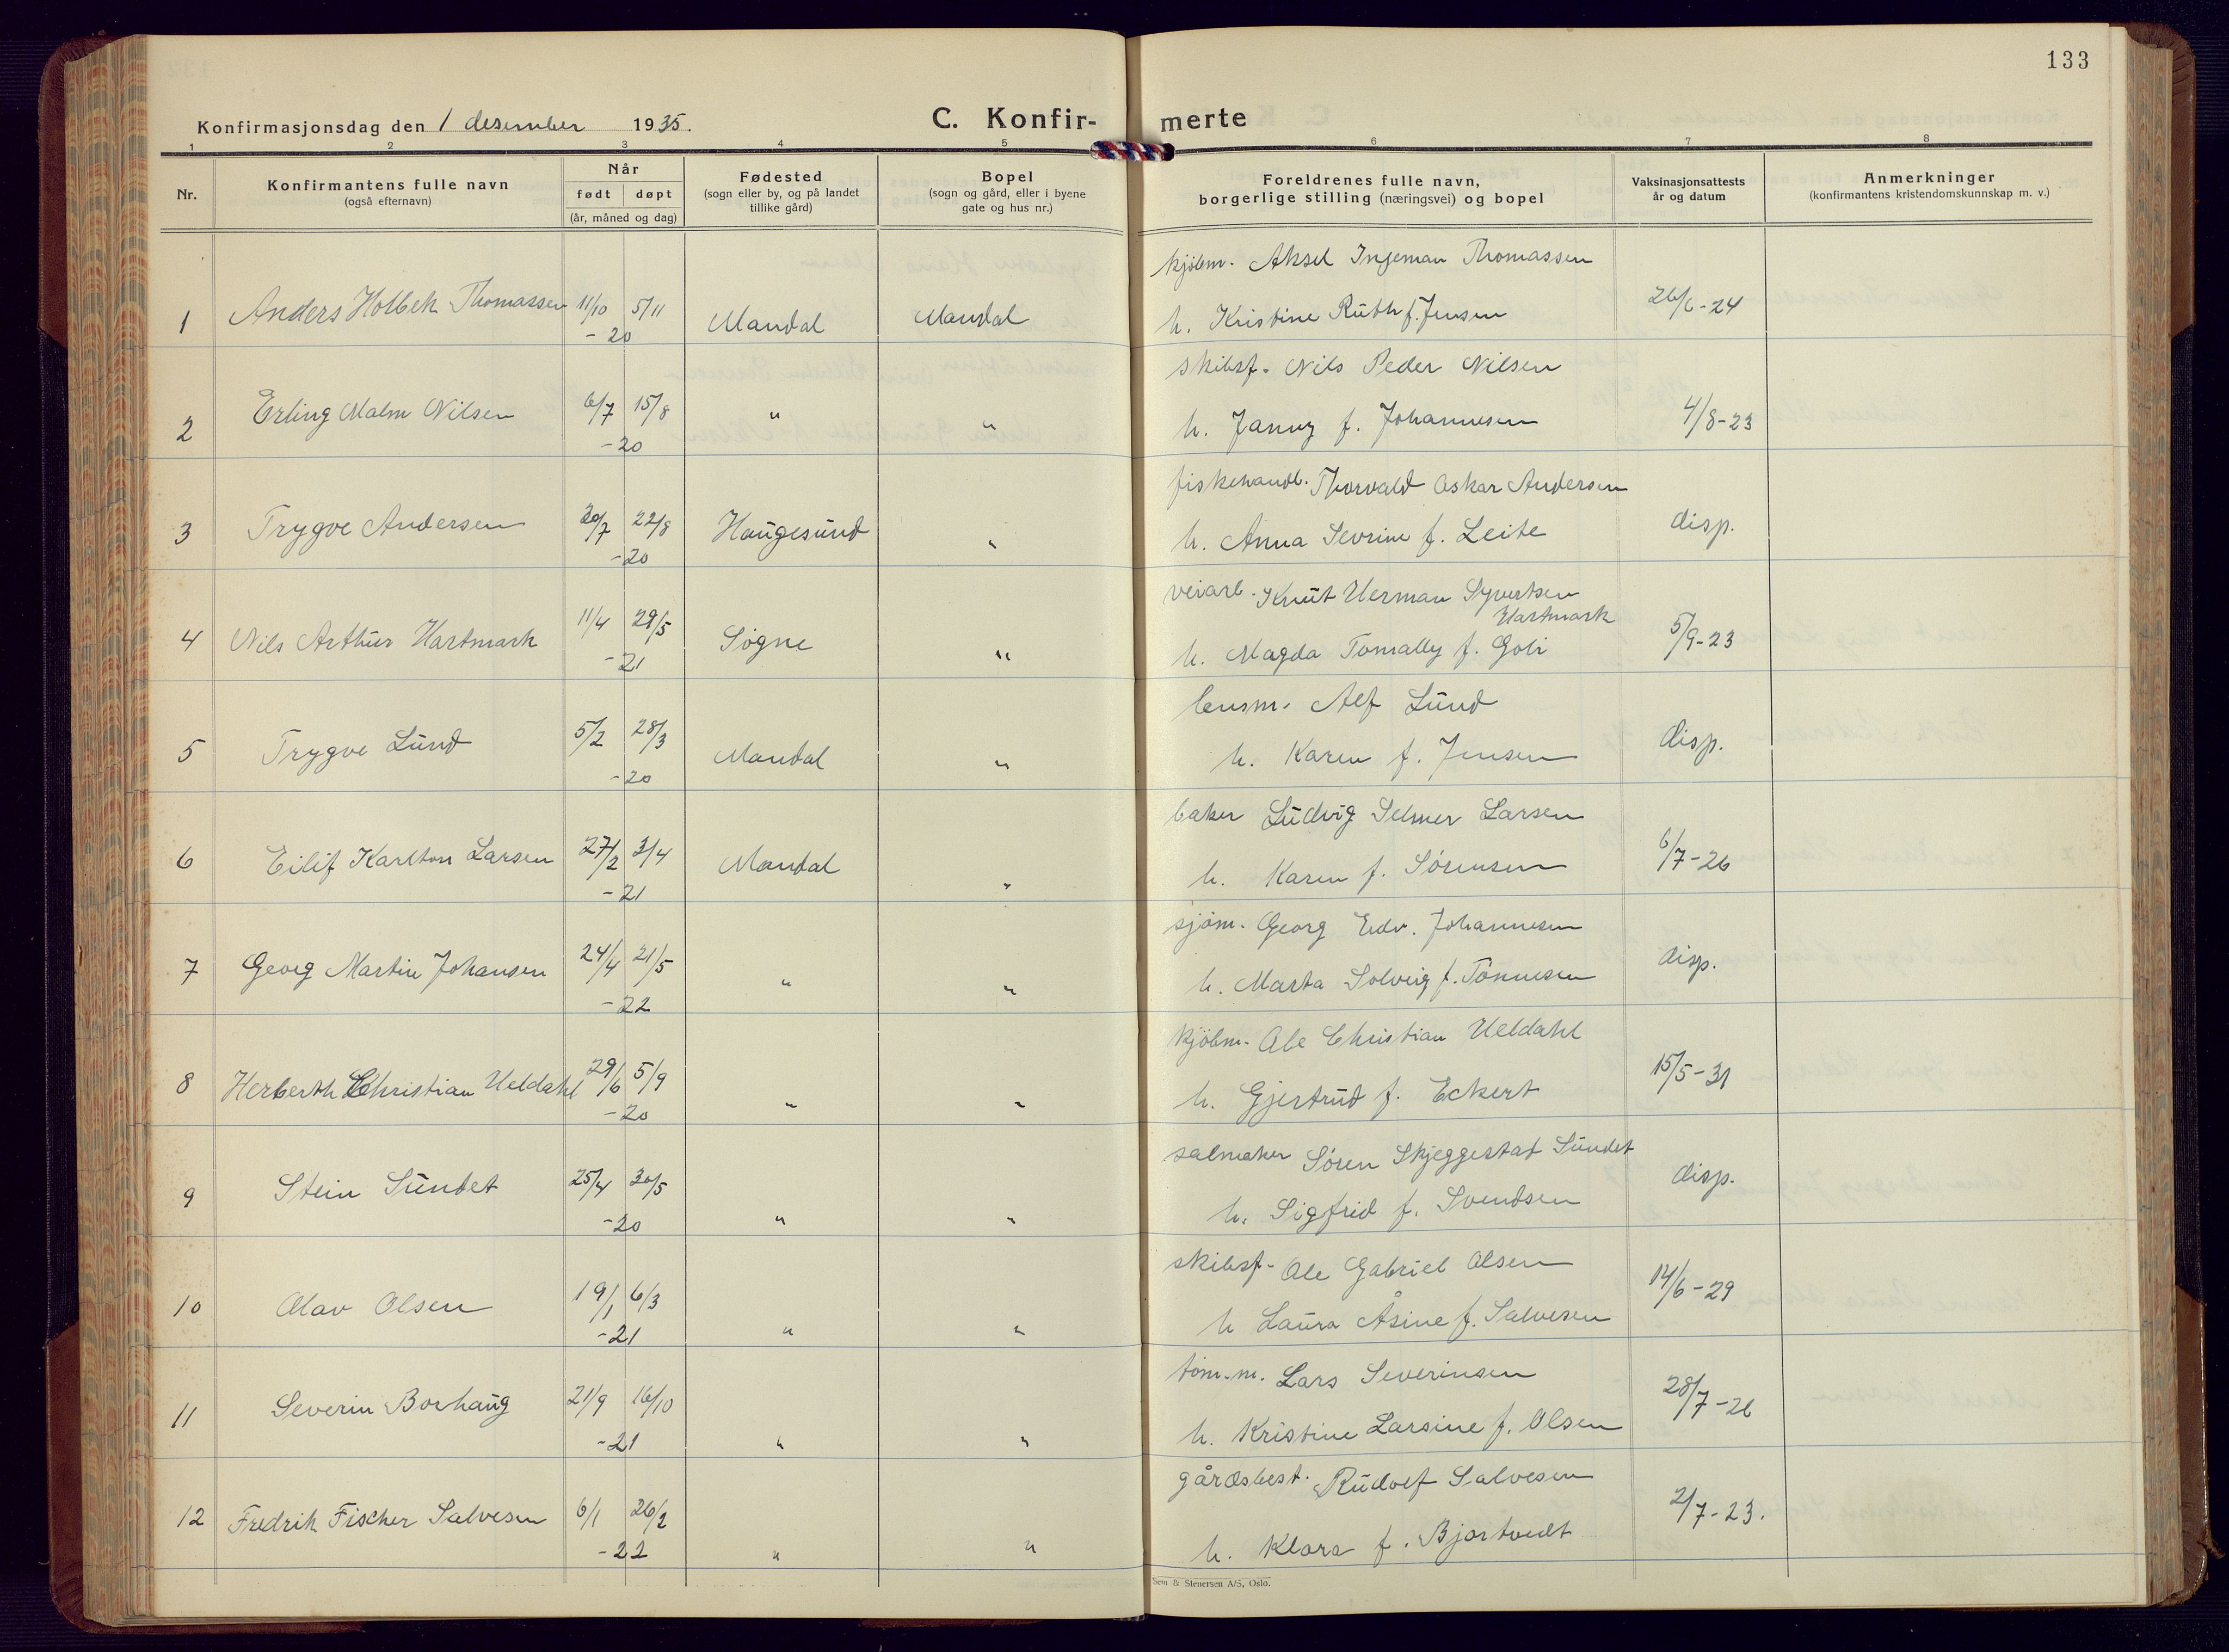 133
Konfirmasjonsdag den 1 desember 1935.
C. Konfir- merte
1 2 3 4 5 6 7 8
Nr.
Konfirmantens fulle navn
(også efternavn)
Når
født døpt
(år, måned og dag)
Fødested
(sogn eller by, og på landet
tillike gård)
Bopel
(sogn og gård, eller i byene
gate og hus nr.)
Foreldrenes fulle navn,
borgerlige stilling (næringsvei) og bopel
Vaksinasjonsattests
år og datum
Anmerkninger
(konfirmantens kristendomskunnskap m. v.)
kjöbm. Aksel Ingeman Thomassen
1 Anders Holbek Thomassen 11/10 5/11 Mandal Mandal h. Kristine Ruth f. Jensen 26/6-24
-20
skibsf. Nils Peder Nilsen
2 Erling Malm Nilsen 6/7 15/8 " " h. Janny f. Johannesen 4/8-23
-20
fiskehandl. Thorvald Oskar Andersen
3 Trygve Andersen 20/7 22/8 Haugesund " h. Anna Sevrine f. Leite disp.
-20
veiarb. Knut Herman Syvertsen
Hartmark
4 Nils Arthur Hartmark 11/4 29/5 Søgne " h. Magda Tomally f. Goli 5/9-23
-21
lensm. Alf Lund
5 Trygve Lund 5/2 28/3 Mandal " h. Karen f. Jensen disp.
-20
baker Ludvig Selmer Larsen
6 Eilif Karlton Larsen 27/2 3/4 Mandal " h. Karen f. Sørensen 6/7-26
-21
sjøm. Georg Edv. Johannesen
7 Georg Martin Johansen 24/4 21/5 " " h. Marta Solveig f. Tønnesen disp.
-22
kjöbm. Ole Christian Ueldahl
8 Herberth Christian Ueldahl 29/6 5/9 " " h. Gjertrud f. Eckert 15/5-31
-20
salmaker Sören Skjeggestad Sundet
9 Stein Sundet 25/4 30/5 " " h. Sigfrid f. Svendsen disp.
-20
skibsf. Ole Gabriel Olsen
10 Olav Olsen 19/1 6/3 " " h Laura Åsine f. Salvesen 14/6-29
-21
töm.m. Lars Severinsen
11 Severin Borhaug 21/9 16/10 " " h. Kristine Larsine f. Olsen 28/7-26
-21
gårdsbest. Rudolf Salvesen
12 Fredrik Fischer Salvesen 6/1 26/2 " " h. Klara f. Bjortvedt 2/7-23.
-22
Sem & Stenersen A/S, Oslo.